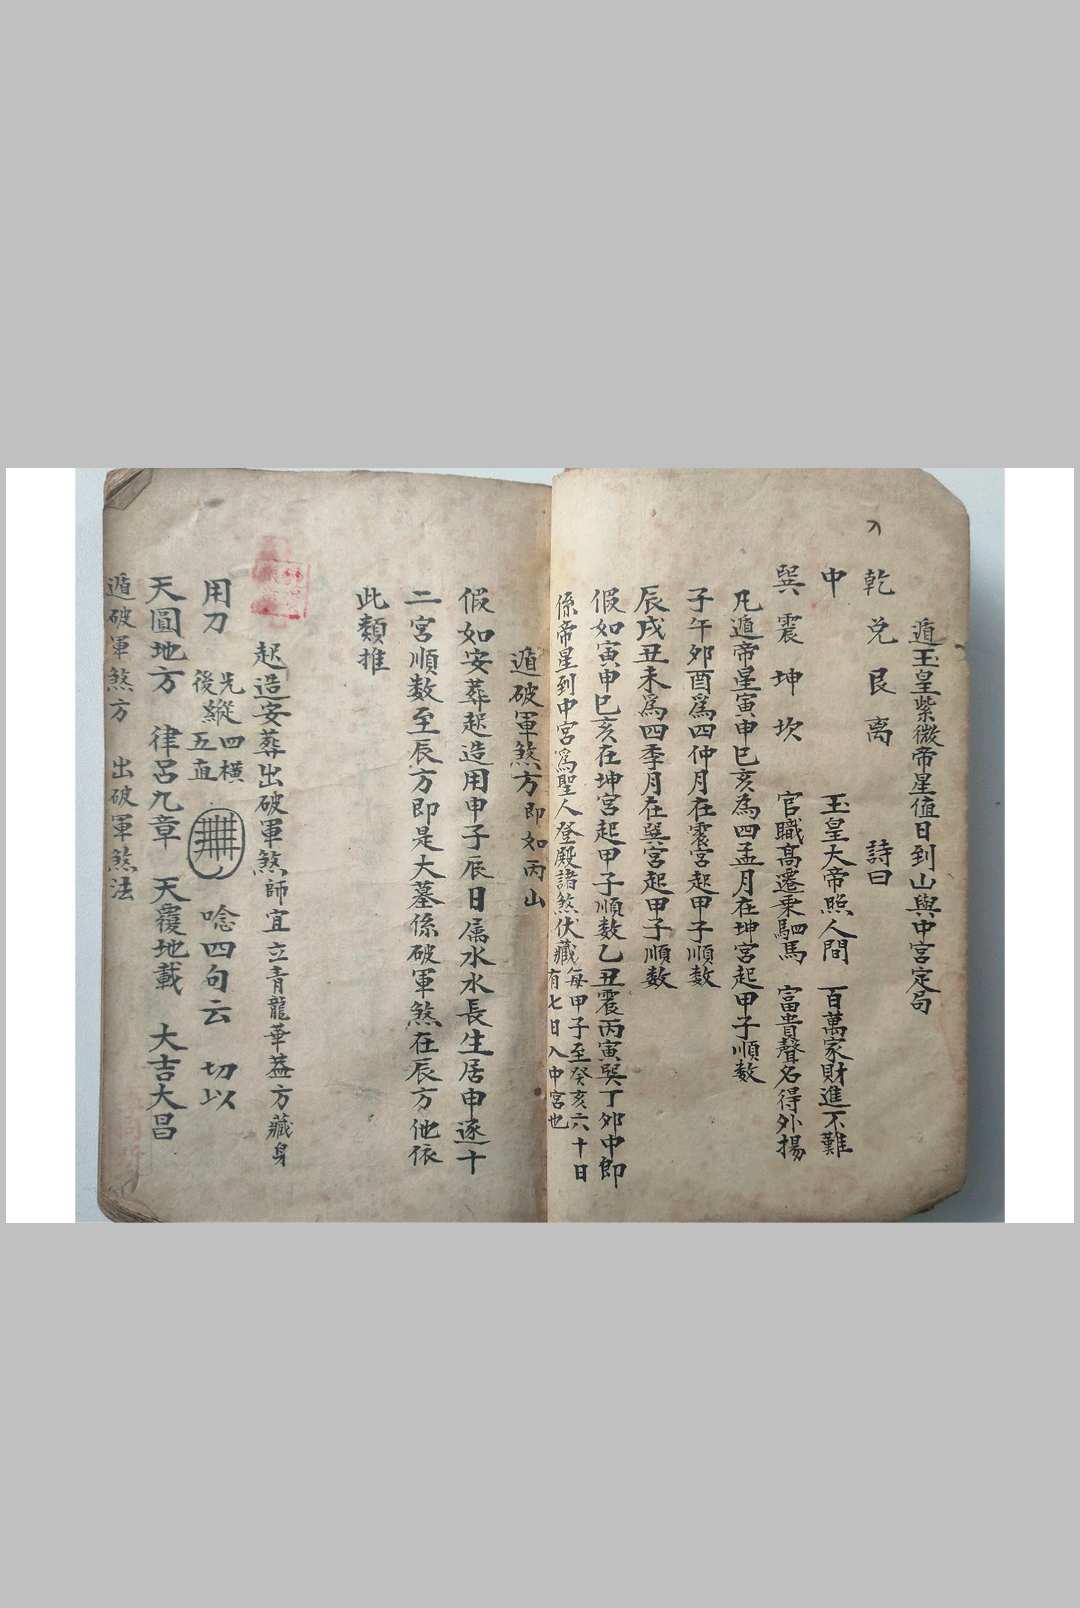 遁玉皇紫微帝星值日到山與中宮定局
乾 兌 艮 离 詩曰
中 玉皇大帝照人間 百萬家財進不難
巽 震 坤 坎 官職高遷乘駟馬 富貴聲名得外揚
凡遁帝星寅申巳亥為四孟月在坤宮起甲子順數
子午夘酉爲四仲月在震宮起甲子順數
辰戌丑未爲四季月在巽宮起甲子順數
假如寅申巳亥在坤宮起甲子順數乙丑震丙寅巽丁夘中即
係帝星到中宮爲聖人登殿諸煞伏藏每甲子至癸亥六十日
有七日入中宮也
遁破軍煞方即如丙山
假如安葬起造用甲子辰日屬水水長生居申逐十
二宮順數至辰方即是大墓係破軍煞在辰方他依
此類推
起造安葬出破軍煞師宜立青龍華盖方藏身
用刀 先縱四橫
後縱五直 唸四句云 切以
天圓地方 律呂九章 天覆地載 大吉大昌
遁破軍煞方 出破軍煞法